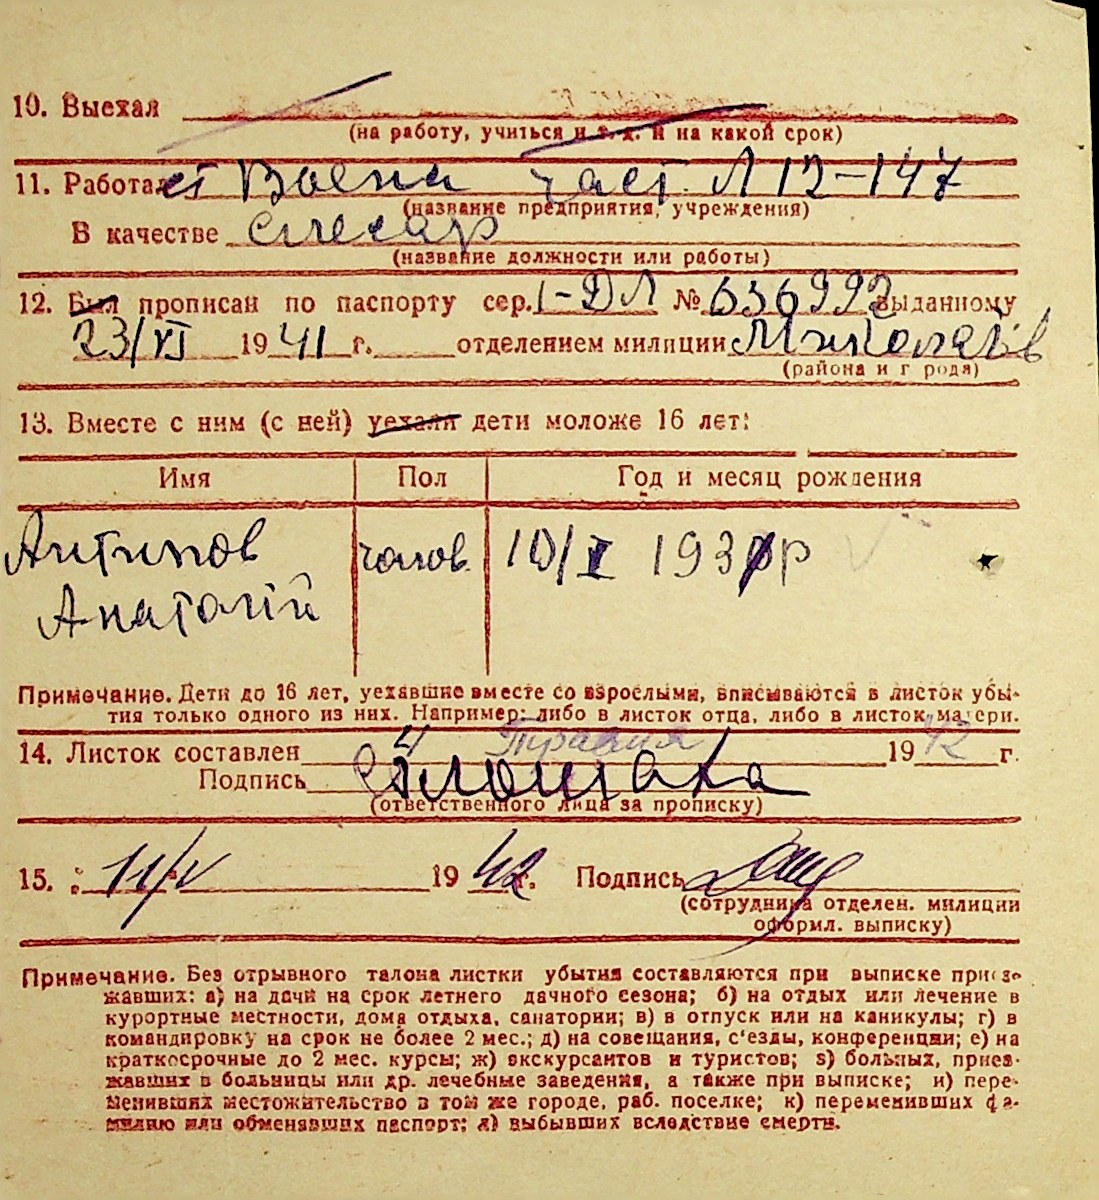 10. Выехал
(на работу, учиться и т. д. и на какой срок)
11. Работает Воена част. Л 12-147
(название предприятия, учреждения)
В качестве слесар
(название должности или работы)
12. Был прописан по паспорту сер. I-ДЛ № 636992 выданному
23/VI 1941 г. отделением милиции Миколаїв
(района и г рода)
13. Вместе с ним (с ней) уехали дети моложе 16 лет:
Имя Пол Год и месяц рождения
Антипов чолов. 10/I 193 р
Анатолій
Примечание. Дети до 16 лет, уехавшие вместе со взрослыми, вписываются в листок убы-
тия только одного из них. Например: либо в листок отца, либо в листок матери.
14. Листок составлен 4 Травня 1942 г.
Подпись
(ответственного лица за прописку)
15. 11/V 1942 г. Подпись
(сотрудника отделен. милиции
оформл. выписку)
Примечание. Без отрывного талона листки убытия составляются при выписке приез-
жавших: а) на дачи на срок летнего дачного сезона; б) на отдых или лечение в
курортные местности, дома отдыха, санатории; в) в отпуск или на каникулы; г) в
командировку на срок не более 2 мес.; д) на совещания, с'езды, конференции; е) на
краткосрочные до 2 мес. курсы; ж) экскурсантов и туристов; з) больных, приез-
жавших в больницы или др. лечебные заведения, а также при выписке; и) пере-
менивших местожительство в том же городе, раб. поселке; к) переменивших фа-
милию или обменявших паспорт; л) выбывших вследствие смерти.